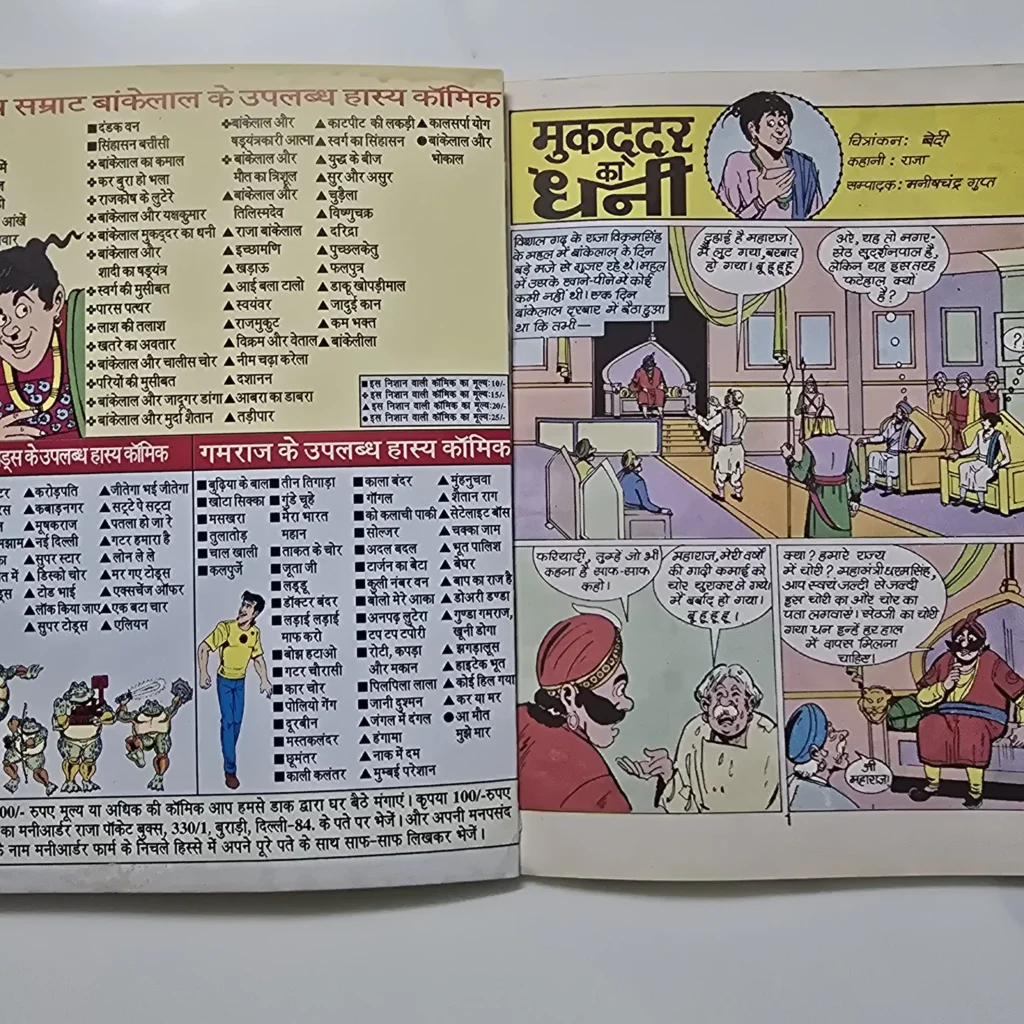 सम्राट बांकेलाल के उपलब्ध हास्य कॉमिक
आंखें
■दंडक वन
■सिंहासन बत्तीसी
❖बांकेलाल का कमाल
❖कर बुरा हो भला
❖राजकोष के लुटेरे
❖बांकेलाल और यक्षकुमार
❖बांकेलाल मुकद्दर का धनी
❖बांकेलाल और
शादी का षड्यंत्र
❖स्वर्ग की मुसीबत
❖पारस पत्थर
❖लाश की तलाश
❖खतरे का अवतार
❖बांकेलाल और चालीस चोर
❖परियों की मुसीबत
❖बांकेलाल और जादूगर डांगा
❖बांकेलाल और मुर्दा शैतान
❖बांकेलाल और
षड्यंत्रकारी आत्मा
❖बांकेलाल और
मौत का त्रिशूल
▲बांकेलाल और
तिलिस्मदेव
▲राजा बांकेलाल
▲इच्छामणि
▲खड़ाऊ
▲आई बला टालो
▲स्वयंवर
▲राजमुकुट
▲विक्रम और वेताल
▲नीम चढ़ा करेला
▲दशानन
▲आबरा का डाबरा
▲तड़ीपार
▲काटपीट की लकड़ी
▲स्वर्ग का सिंहासन
▲युद्ध के बीज
▲सुर और असुर
▲चुड़ैला
▲विष्णुचक्र
▲दरिद्रा
▲पुच्छलकेतु
▲फलपुत्र
▲डाकू खोपड़ीमाल
▲जादुई कान
▲कम भक्त
▲बांकेलीला
▲कालसर्पा योग
●बांकेलाल और
भोकाल
■इस निशान वाली कॉमिक का मूल्य:10/-
❖इस निशान वाली कॉमिक का मूल्य:15/-
▲इस निशान वाली कॉमिक का मूल्य:20/-
●इस निशान वाली कॉमिक का मूल्य:25/-
के उपलब्ध हास्य कॉमिक
▲करोड़पति
▲कबाड़नगर
▲मूषकराज
▲नई दिल्ली
▲सुपर स्टार
▲डिस्को चोर
▲टोड भाई
▲लॉक किया जाए
▲सुपर टोड्स
▲जीतेगा भई जीतेगा
▲सट्टे पे सट्टा
▲पतला हो जा रे
▲गटर हमारा है
▲लोन ले ले
▲मर गए टोड्स
▲एक्सचेंज ऑफर
▲एक बटा चार
▲एलियन
गमराज के उपलब्ध हास्य कॉमिक
■बुढ़िया के बाल
■खोटा सिक्का
■मसखरा
■तुलातोड़
■चाल खाली
■कलपुर्जे
■तीन तिगाड़ा
■गुंडे चूहे
■मेरा भारत
महान
■ताकत के चोर
■जूता जी
■लड्डू
■डॉक्टर बंदर
■लड़ाई लड़ाई
माफ करो
■बोझ हटाओ
■गटर चौरासी
■कार चोर
■पोलियो गैंग
■दूरबीन
■मस्तकलंदर
■छूमंतर
■काली कलंतर
■काला बंदर
■गॉगल
■को कलाची पाकी
■सोल्जर
■अदल बदल
■टार्जन का बेटा
■कुली नंबर वन
■बोलो मेरे आका
■अनपढ़ लुटेरा
■टप टप टपोरी
■रोटी, कपड़ा
और मकान
■पिलपिला लाला
■जानी दुश्मन
▲जंगल में दंगल
▲हंगामा
▲नाक में दम
▲मुम्बई परेशान
▲मुंहनुचवा
▲शैतान राग
▲सेटेलाइट बॉस
▲चक्का जाम
▲भूत पालिश
▲बेघर
▲बाप का राज है
▲डोअरी डण्डा
▲गुण्डा गमराज,
खूनी डोगा
▲झगड़ालूस
▲हाइटेक भूत
▲कोई हिल गया
▲कर या मर
●आ मौत
मुझे मार
00/- रुपए मूल्य या अधिक की कॉमिक आप हमसे डाक द्वारा घर बैठे मंगाएं। कृपया 100/-रुपए
का मनीआर्डर राजा पॉकेट बुक्स, 330/1, बुराड़ी, दिल्ली-84. के पते पर भेजें। और अपनी मनपसंद
के नाम मनीआर्डर फार्म के निचले हिस्से में अपने पूरे पते के साथ साफ-साफ लिखकर भेजें।
मुकद्दर
का
धनी
चित्रांकन: बेदी
कहानी: राजा
सम्पादक: मनीषचंद्र गुप्त
विशाल गढ़ के राजा विक्रमसिंह
के महल में बांकेलाल के दिन
बड़े मजे से गुजर रहे थे। महल
में उसके खाने-पीने में कोई
कमी नहीं थी। एक दिन
बांकेलाल दरबार में बैठा हुआ
था कि तभी—
दुहाई है महाराज!
मैं लुट गया, बरबाद
हो गया। बू हू हू हू
अरे, यह तो नगर-
सेठ सुदर्शनपाल है,
लेकिन यह इस तरह
फटेहाल क्यों
है?
?
फरियादी, तुम्हें जो भी
कहना है साफ-साफ
कहो।
महाराज, मेरी वर्षों
की गाढ़ी कमाई को
चोर चुराकर ले गये।
मैं बर्बाद हो गया।
बू हू हू हू!
क्या? हमारे राज्य
में चोरी? महामंत्री धरमसिंह,
आप स्वयं जल्दी से जल्दी
इस चोरी का और चोर का
पता लगवायें। सेठजी का चोरी
गया धन इन्हें हर हाल
में वापस मिलना
चाहिए।
जी
महाराज।